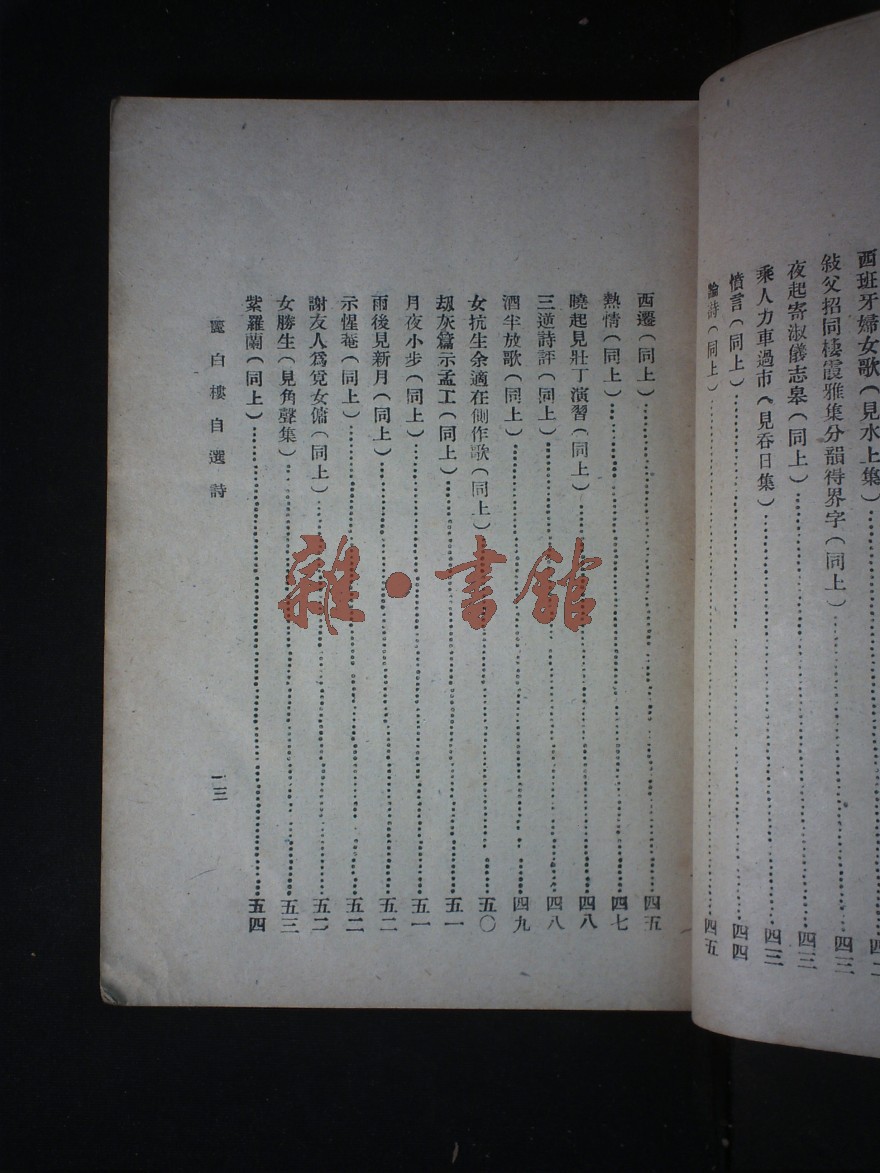 西班牙婦女歌(見水上集)
敍父招同棲霞雅集分韻得界字(同上)……四三
夜起寄淑儀志皋(同上)……四三
乘人力車過市(見吞日集)……四三
憤言(同上)……四四
論詩(同上)……四五
西遷(同上)……四五
熱情(同上)……四七
曉起見壯丁演習(同上)……四八
三逆詩評(同上)……四八
酒半放歌(同上)……四九
女抗生余適在側作歌(同上)……五〇
劫灰篇示孟工(同上)……五一
月夜小步(同上)……五一
雨後見新月(同上)……五二
示惺菴(同上)……五二
謝友人爲覓女傭(同上)……五二
女勝生(見角聲集)……五三
紫羅蘭(同上)……五四
白樓自選詩
一三
雜·書館